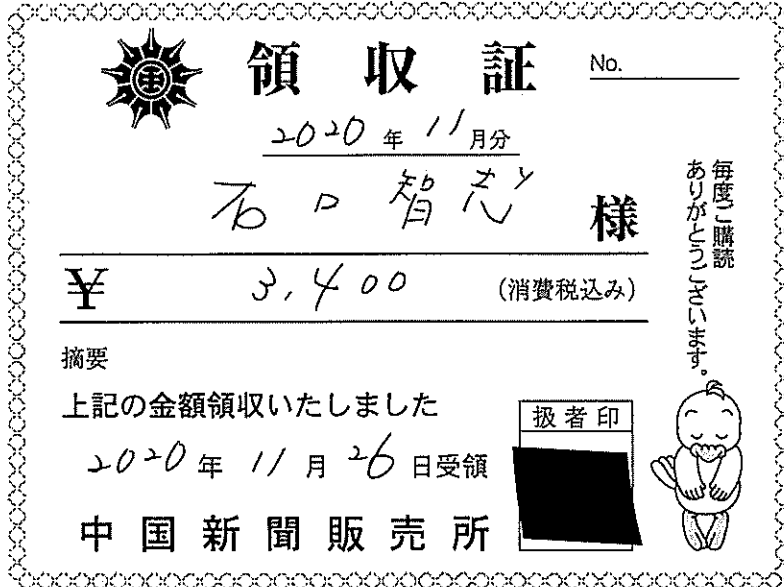 領収証
No.
2020年11月分
石口智志様
¥3,400(消費税込み)
摘要
上記の金額領収いたしました
2020年11月26日受領
扱者印
中国新聞販売所
毎度ご購読
ありがとうございます。